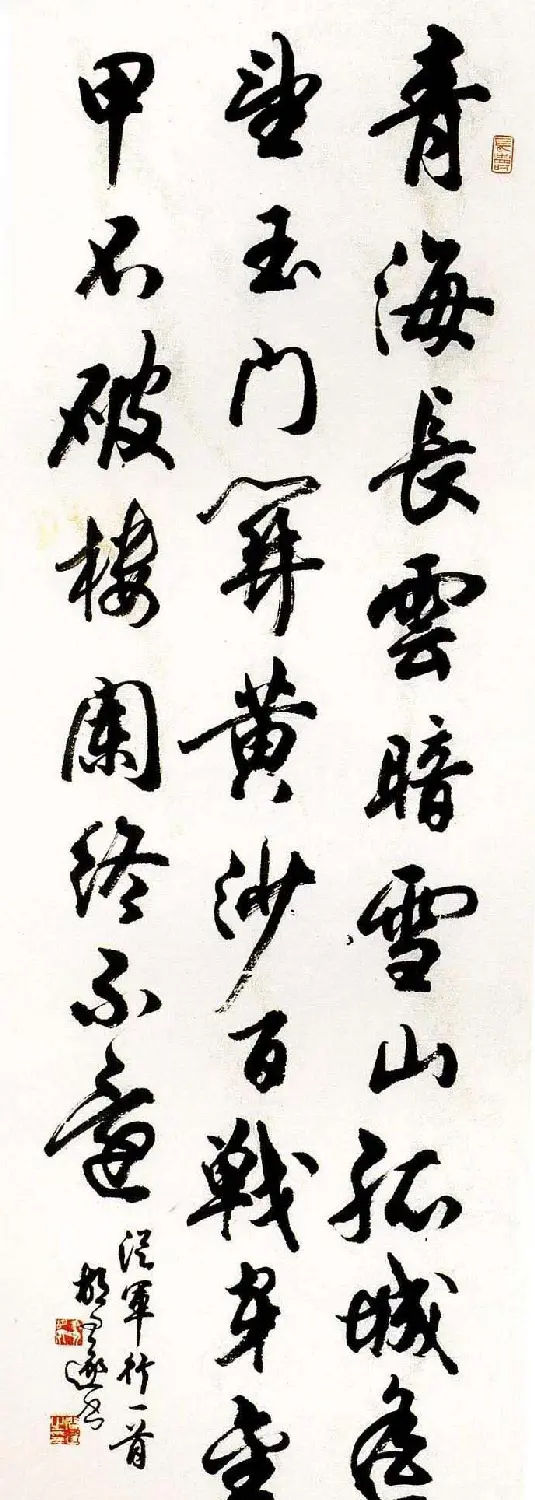 青海長雲暗雪山孤城遙
望玉门關黄沙百戰身
甲不破樓闌終不還
從軍行一首
胡问遂书